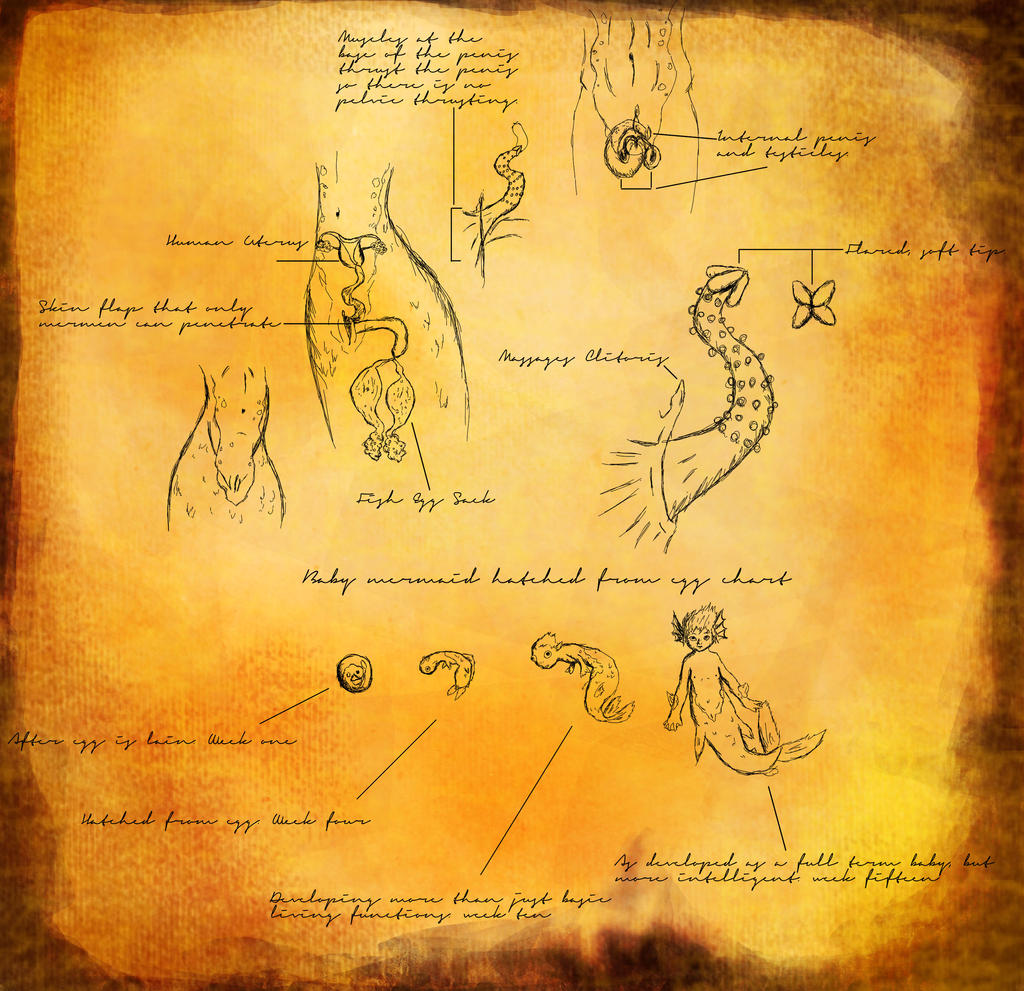 Muscles at the
base of the penis
thrust the penis
so there is no
pelvic thrusting.
Internal penis
and testicles.
Human Uterus
Flared, soft tip.
Skin flap that only
mermen can penetrate
Massages Clitoris
Fish Egg Sack
Baby mermaid hatched from egg chart
After egg is lain. Week one
Hatched from egg. Week four
As developed as a full term baby, but
more intelligent. week fifteen
Developing more than just basic
living functions. week ten